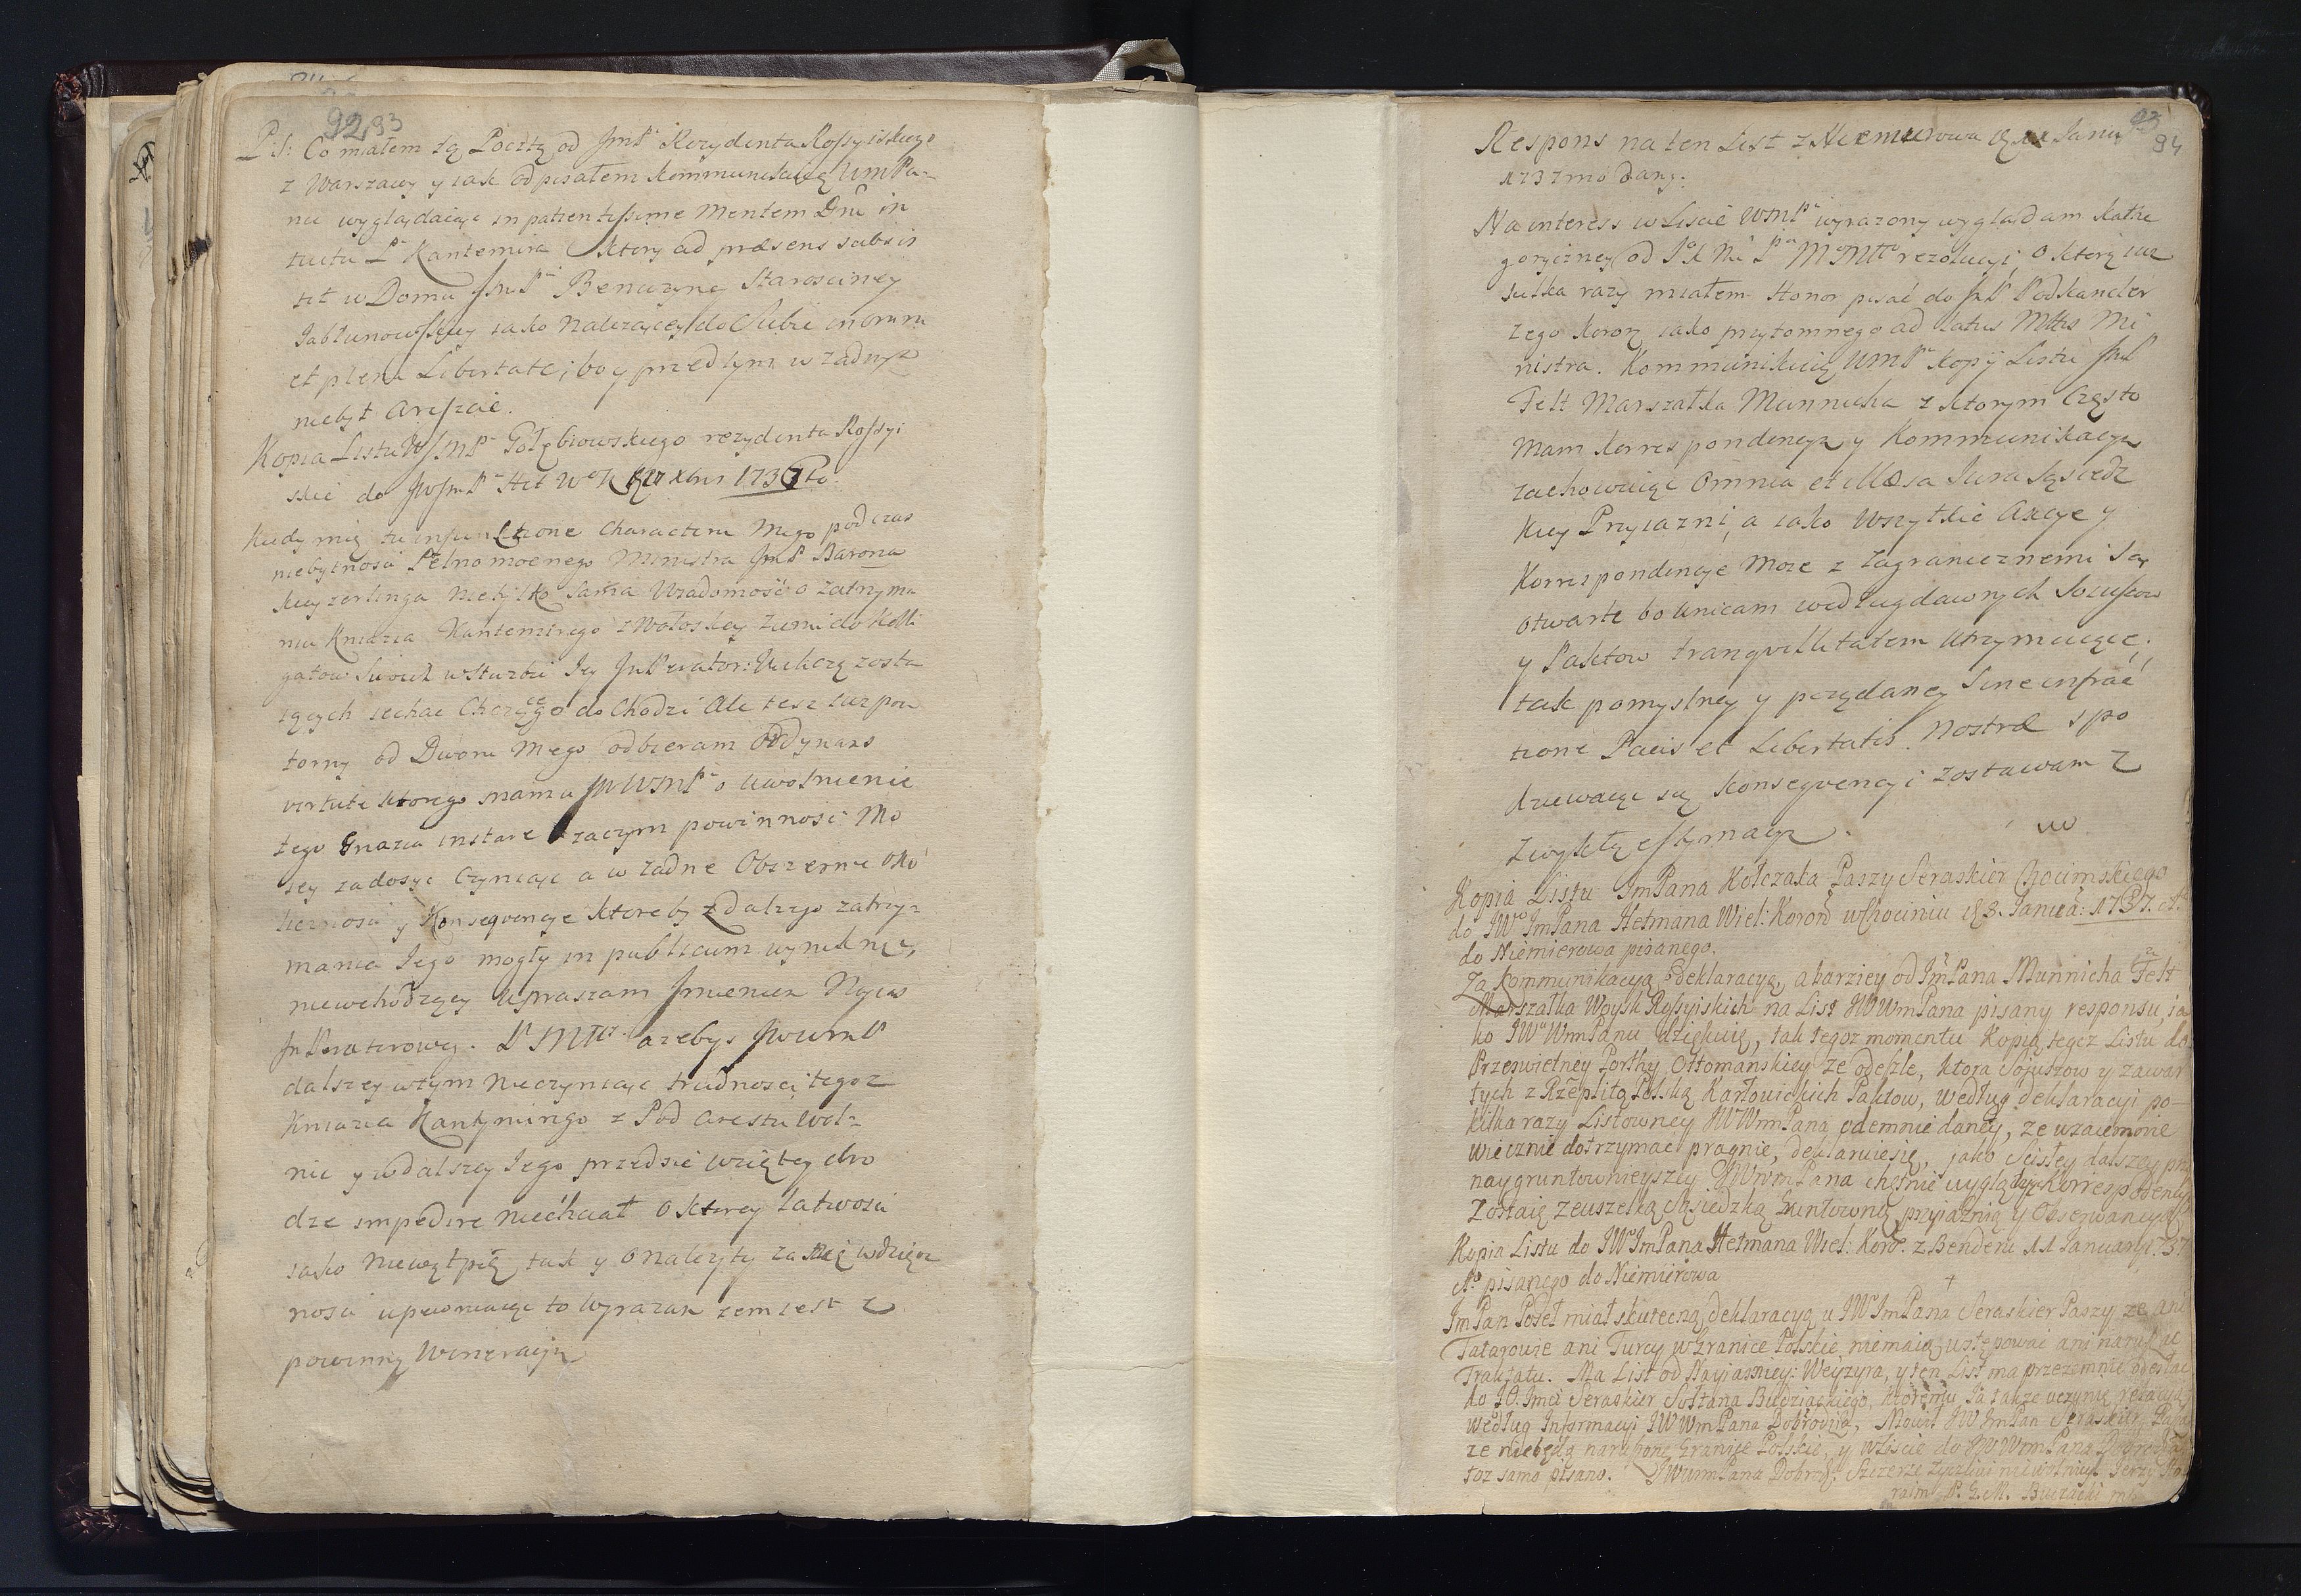 92 93
P: S: Co miałem tą Pocztą od JmP Rezydenta Rossyiskiego
z Warszawy y iak odpisałem kommunikuię WmPa-
nu wyglądaiąc inpatientissime Mentem Dni in
tuitu P Kantemira ktory ad præsens subsis
tit w Domu JmP Benuzyney Starosciney
Jabłunowskiey iako należącey do Siebie in omni
et plena Libertate, bo y przedtym w żadnym
niebył Areszcie.
Kopia Listu WJmP Gołębiowskiego rezydenta Rossyi
skie do JWJmP Het W K 27 Xbris 1736to.
Kiedy mię tu in functione Characteru Mego podczas
niebytnosci Pełnomocnego Ministra JmP Barona
Keyzerlinga nietylko sama Wiadomość o zatrzyma
niu Kniazia Kantemirego z Wołoskiey Ziemi do Kolli
gatow Swoich w służbie Jey JmPerator: Wieliczę zosta
iących iechać Chcącego dochodzi Ale tesz iuz pow
torny od Dworu Mego odbieram Ordynans
virtute ktorego mam u JWWmP o uwolnienie
tego Gnazia instare zaczym powinnosci Mo
iey zadosyc Czyniąc a w żadne Obszerne Oko
licznosci y Konsequencye ktoreby z dalszego zatrzy-
mania Jego mogły in publicum wyniknąc,
niewchodzący upraszam Jmieniem Nayias
JmPeratorowey. P MMci azebys JWWmP
dalszey wtym Nieczyniąc trudnosci tegoz
Kniazia Kantymirgo z Pod Arestu Wol-
nie y w dalszey Jego przedsie wziętey dro
dze impedire niechciał o ktorey łatwosci
iako Niewątpię tak y o należyty za Nię wdzięcz
nosci upewniaiąc to wyrazam zem iest z
powinną Weneracyą
93 94
Respons na ten List z Niemirowa 11 Janu
1737mo dany.
Na interess w Liscie WmP wyrazony wyglądam Kathe
goryczney od J K Mci P MMci rezolucyi, o ktorą iuz
kilka razy miałem Honor pisać do JmP Podkancler
zego Koron iako przytomnego ad latus Mttis Mi
nistra. Kommunikuię WmP kopij Listu JmP
Felt Marszałka Munnicha z ktorym Często
Mam Korrespondencyą y Kommunikacyą
zachowuiąc Omnia et illæsa Jura Sąsiedz
kiey Przyiazni, a iako Wszytkie Akcye y
Korrespondencye Moie z zagranicznemi Są
otwarte bo unicam według dawnych Soiuszow
y Paktow tranquillitatem utrzymuiące,
tak pomyslney y pożądaney Sine infrac
tione Pacis et Libertatis Nostræ spo
dziewaiąc się Konsequencyi zostawam z
Zwykłą estymacyą.
Kopia Listu JmPana Kołczaka Paszy Seraskier Chocimskiego
do JWo JmPana Hetmana Wiel: Koron w Chocimiu 13. Januar: 1737. A
do Niemierowa pisanego.
Za Kommunikacyą, deklaracyą, a barziey od JmPana Munnicha Felt
Marszałka Woysk Rossyiskich na List JWWmPana pisany responsu, ia
ko JWo WmPanu dziękuię, tak tegoz momentu Kopią tegoz Listu do
Przeswietney Porthy Ottomańskiey ze odeszle, ktora Soiuszow y zawar
tych z Rzeplitą Polską Karłowickich Paktow, według deklaracyi po-
kilka razy Listowney JWWmPana odemnie daney, ze wzaiemnie
wiecznie dotrzymac pragnie, deklaruie się, jako Scisłey dalszey przy
naygruntownieyszey JWWmPana chętnie wyglądam Korrespodencyi
Zostaię z euszelką Sąsiedzką Gruntowną przyiaznią y Obserwancyą
Kopia Listu do JWo JmPana Hetmana Wiel: Kor. z Benderu 11 Januarij. 737
A. pisanego do Niemierowa
JmPan Poseł miał skuteczną deklaracyą u JWo JmPana Seraskier Paszy, ze ani
Tatarowie ani Turcy w Granice Polskie niemaią ustępowac ani naruszac
Traktatu. Ma List od Nayiasniey: Weyzyra, y ten List ma przezemnie odesłac
do JO. Jmci Seraskier Sołtana Budziackiego, ktoremu Ja takze uczynię relacyą
według Informacyi JWWmPana Dobrodzia, Mowił JW JmPan Seraskier Pasza
ze niebędą naruszone Granice Polskie, y w Liscie do JWWmPana Dobrodzia
toz samo pisano. JWWmPana Dobrodz. Szczerze zyczliwi niewolnik Jerzy